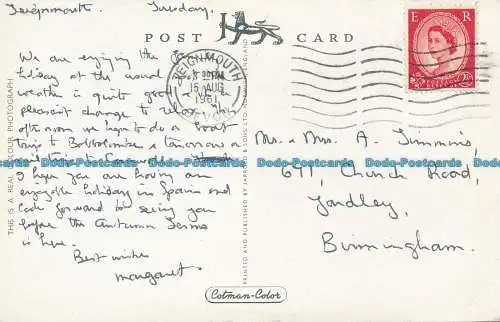 Teignmouth. Tuesday.
POST CARD
E R
TEIGNMOUTH
15 AUG
1961
DEVON
We are enjoying the
holiday at the usual
weather is quite good
pleasant change to relax. This
afternoon we hope to do a boat
trip to Babbacombe & tomorrow a
I hope you are having an
enjoyable holiday in Spain and
look forward to seeing you
before the Autumn Terms
is here.
Best wishes
Margaret.
Mr & Mrs A. Timmins,
671, Church Road,
Yardley,
Birmingham.
THIS IS A REAL COLOUR PHOTOGRAPH
PRINTED AND PUBLISHED BY JARROLD & SONS LTD.
Cotman-Color
Dodo-Postcards Dodo-Postcards Dodo-Postcards Dodo-Postcards